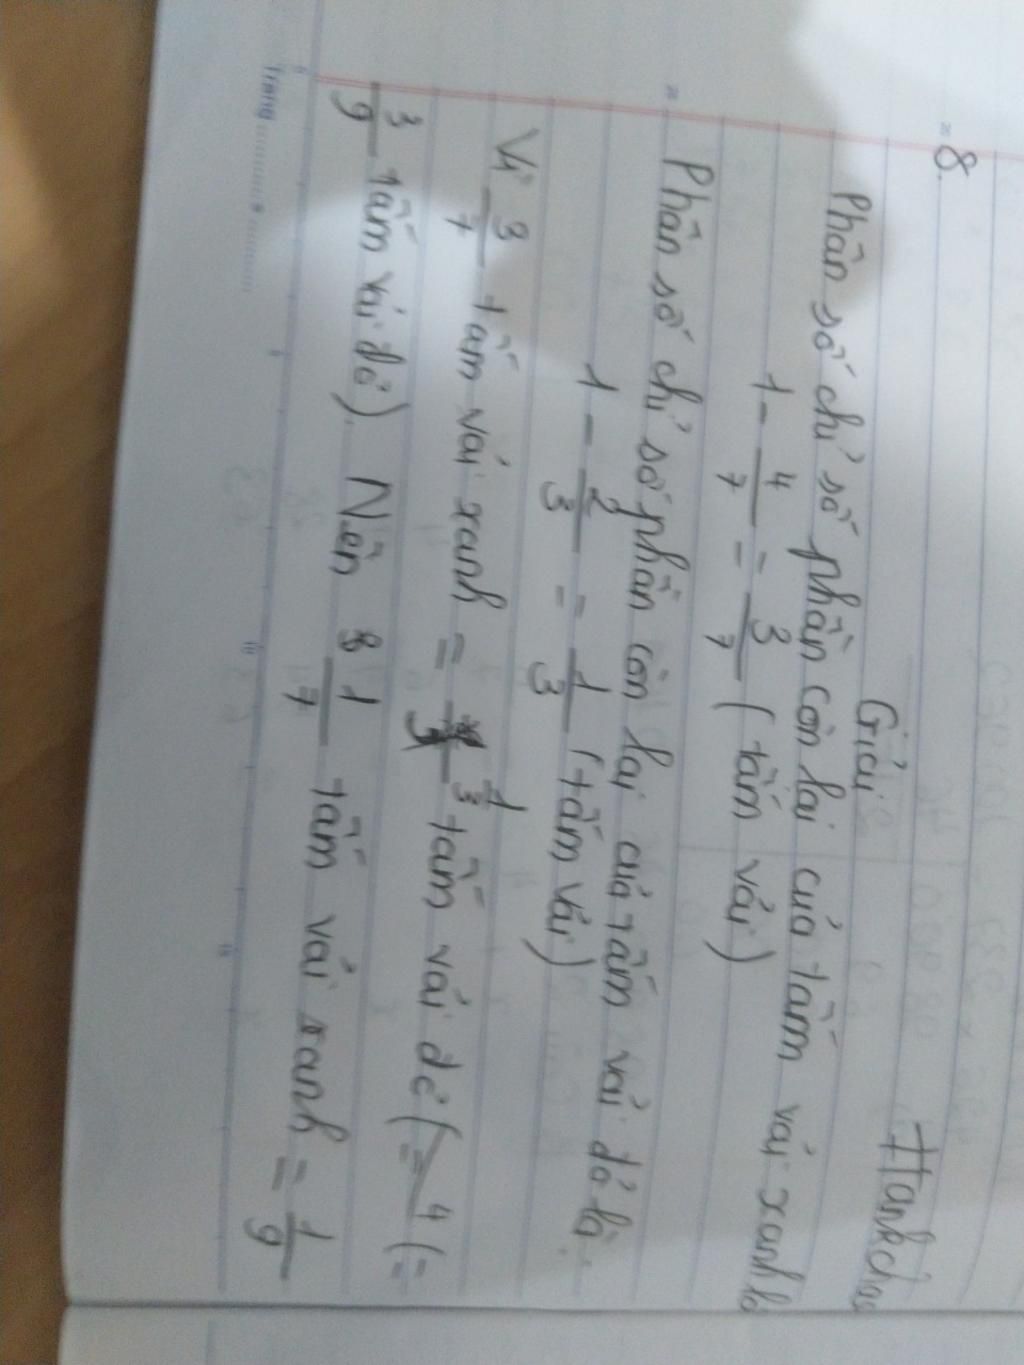 8.
Giải
Phân số chỉ số phần còn lại của tấm vải xanh là
1 - 4/7 = 3/7 (tấm vải)
Phân số chỉ số phần còn lại của tấm vải đỏ là:
1 - 2/3 = 1/3 (tấm vải)
Vì 3/7 tấm vải xanh = 1/3 tấm vải đỏ (=
3/9 tấm vải đỏ). Nên 1/7 tấm vải xanh = 1/9
Trang